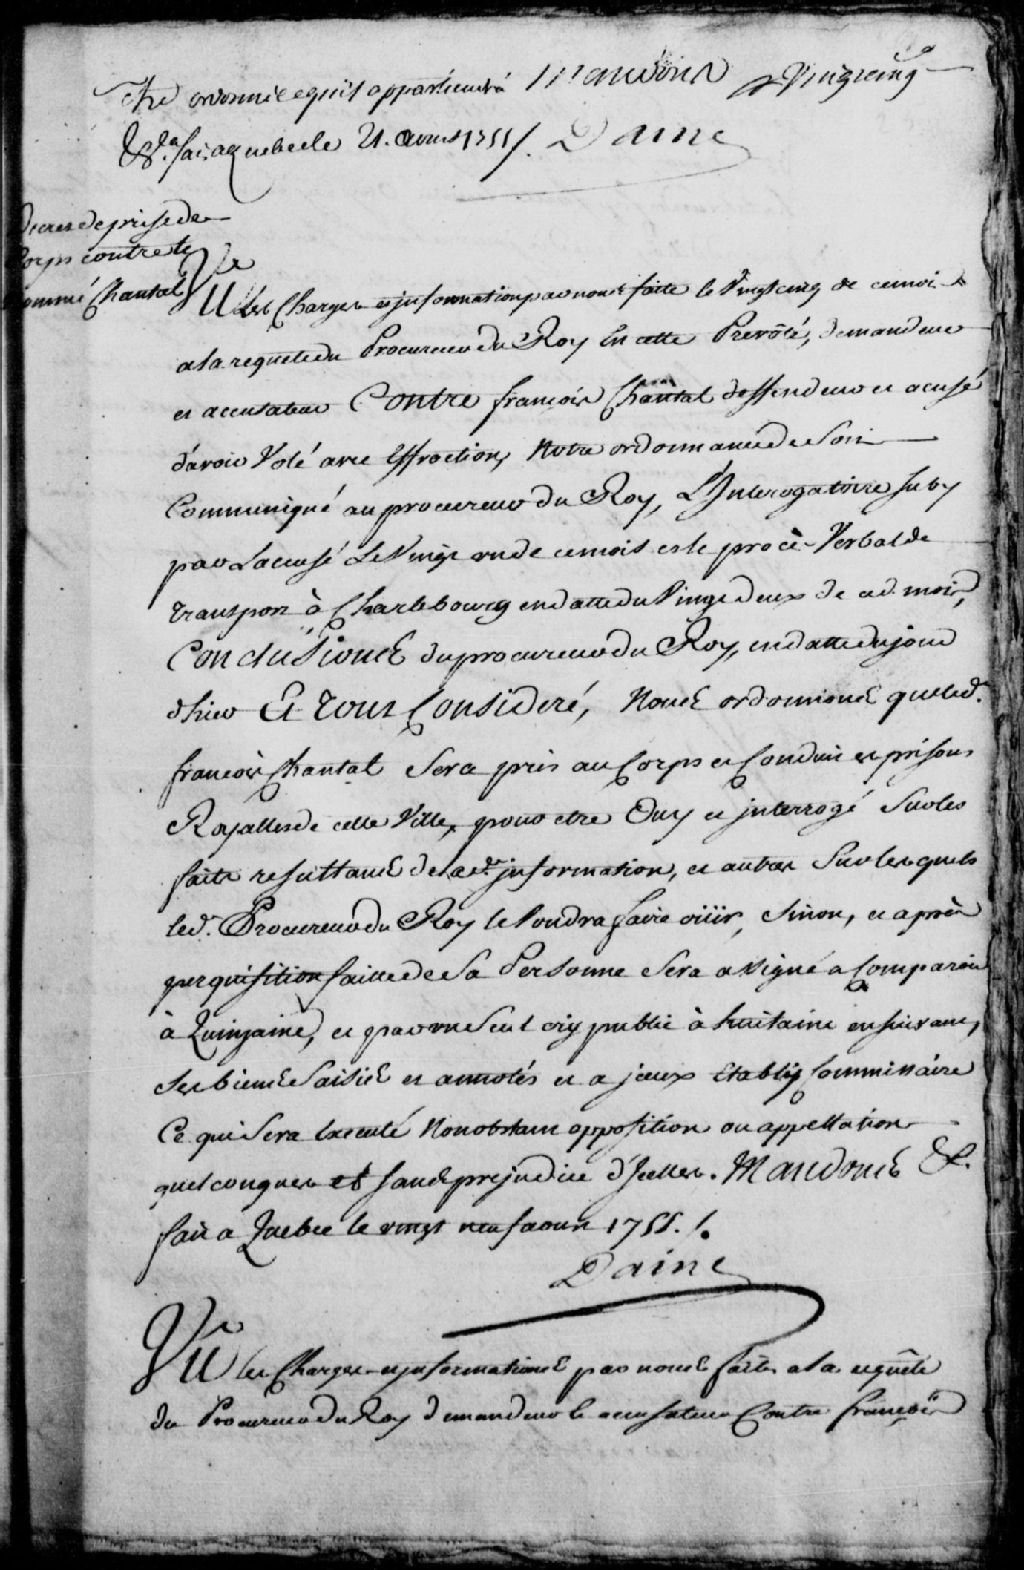 Vingt cinq
être ordonné ce qu'il appartiendra Mandons
&a. fait a quebec le 21. aoust 1755 /. Daine
Decret de prise de
Corps contre le
nommé Chantal
Vû Les Charges et informations par nous faite le Vingt cinq de ce mois
a la requete du Procureur du Roy En cette Prevôté, demandeur
et accusateur Contre françois Chantal deffendeur et acusé
d'avoir Volé avec Effraction, Notre ordonnance de Soit
Communiqué au procureur du Roy, L'Interogatoire suby
par L'acusé Le Vingt un de ce mois et le procè-Verbal de
transport à Charlebourg en datte du Vingt deux de ced. mois,
Conclusions du procureur du Roy, en datte du jour
d'hier Et tout Considéré, Nous ordonnons que led.
françois Chantal Sera pris au Corps et Conduit es prisons
Royalles de cette Ville, pour etre Ouy et interrogé Sur les
faits resultans de lad. information, et autres Sur lesquels
led. Procureur du Roy le Voudra faire oüir, Sinon, et après
perquisition faitte de Sa Personne Sera assigné a Comparoir
à Quinzaine, et par un Seul cry public à huitaine ensuivant,
Ses biens Saisis et annotés et a iceux Etably Commissaire
Ce qui Sera Executé Nonobstant opposition ou appellation
quelconques et sans prejudice d'Icelles. Mandons &.
fait a Quebec le vingt neuf aout 1755. /.
Daine
Vû les Charges et informations par nous faites a la requête
du Procureur du Roy demandeur & accusateur Contre françois